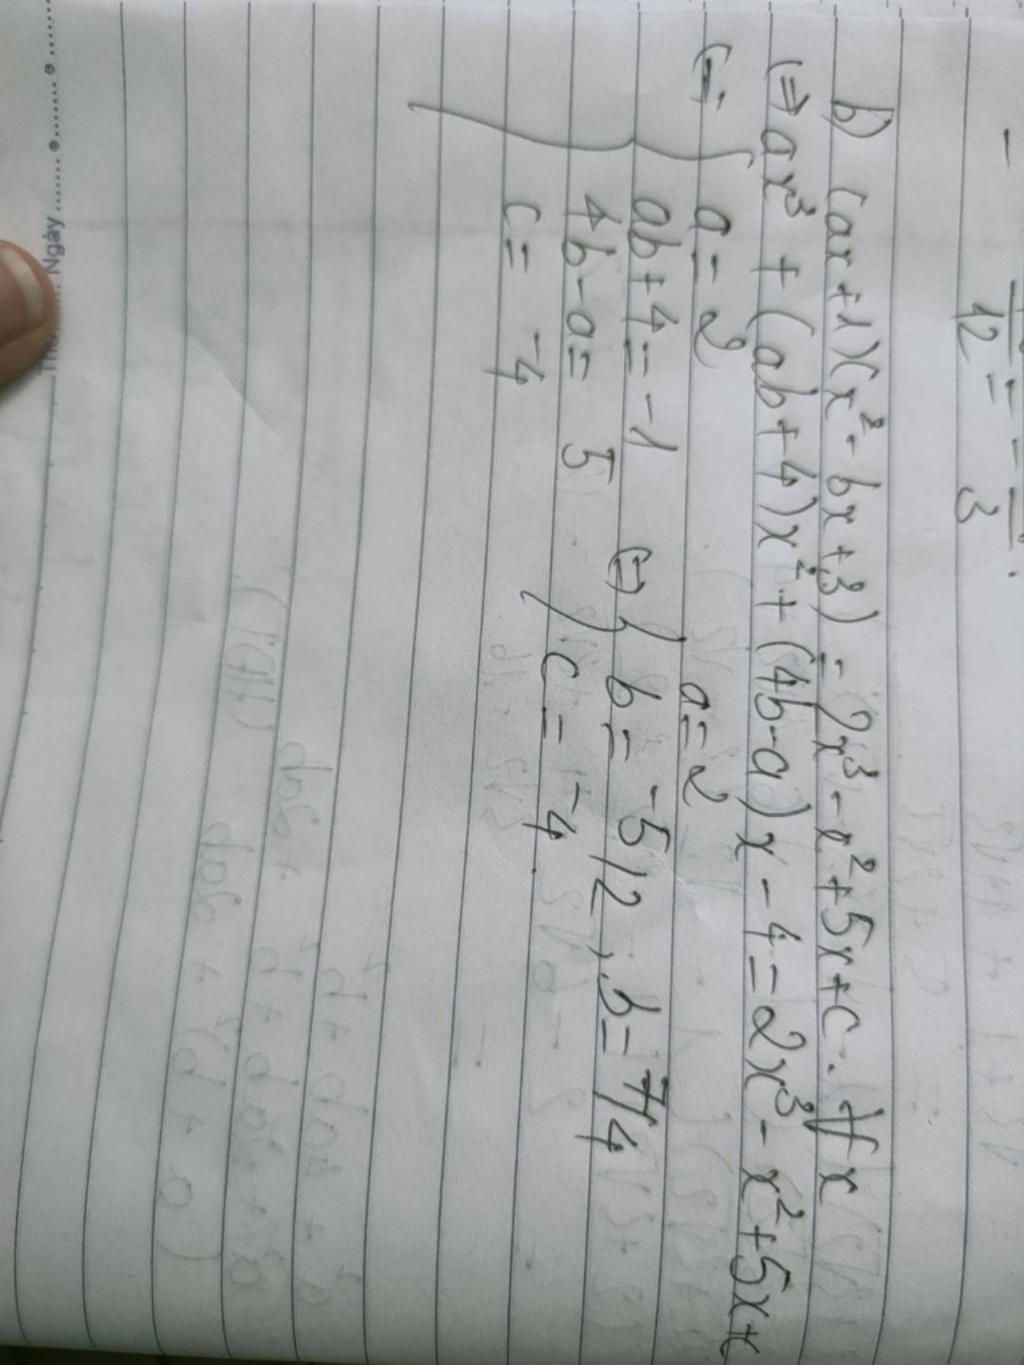 12 = - 3
b) (ax+1)(x² - bx + 3) = 2x³ - x² + 5x + c. ∀x
(=) ax³ + (ab+4)x² + (4b-a)x - 4 = 2x³ - x² + 5x +
(=) { a = 2
ab + 4 = -1
4b - a = 5
c = -4
(=) { a = 2
b = -5/2, b = 7/4
c = -4
Ngày